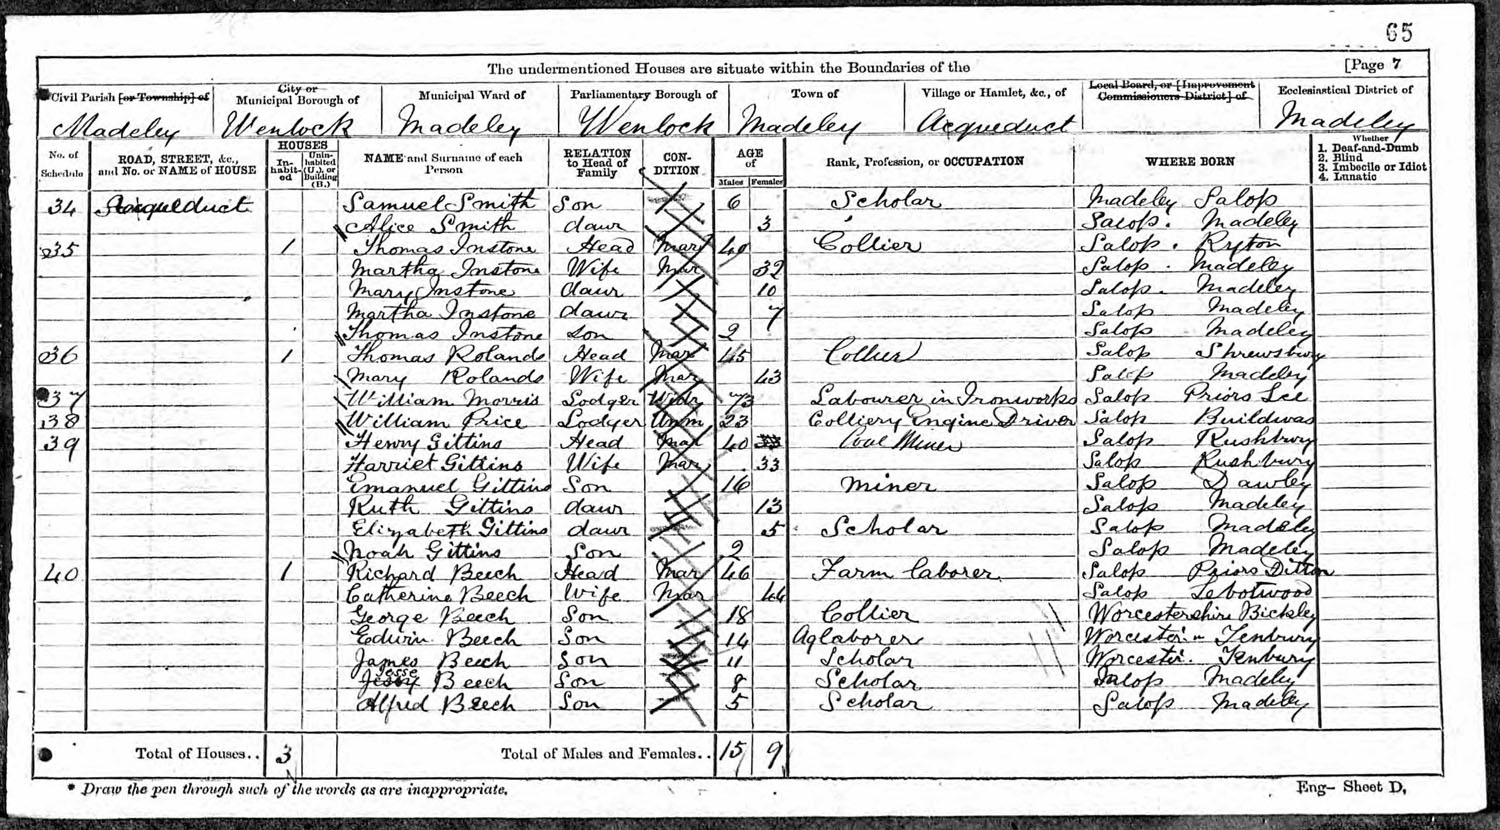 65
The undermentioned Houses are situate within the Boundaries of the [Page 7
Civil Parish [or Township] of City or Municipal Borough of Municipal Ward of Parliamentary Borough of Town of Village or Hamlet, &c., of Local Board, or [Improvement Commissioners District] of Ecclesiastical District of
Madeley Wenlock Madeley Wenlock Madeley Acqueduct Madeley
No. of Schedule ROAD, STREET, &c., and No. or NAME of HOUSE HOUSES In-habit-ed Unin-habited (U.), or Building (B.) NAME and Surname of each Person RELATION to Head of Family CON-DITION AGE of Males Females Rank, Profession, or OCCUPATION WHERE BORN Whether 1. Deaf-and-Dumb 2. Blind 3. Imbecile or Idiot 4. Lunatic
34 Acqueduct Samuel Smith Son 6 Scholar Madeley Salop
Alice Smith daur 3 Salop. Madeley
35 1 Thomas Instone Head Mar 49 Collier Salop. Ryton
Martha Instone Wife Mar 32 Salop. Madeley
Mary Instone daur 10 Salop. Madeley
Martha Instone daur 7 Salop Madeley
Thomas Instone Son 2 Salop Madeley
36 1 Thomas Rolands Head Mar 45 Collier Salop Shrewsbury
Mary Rolands Wife Mar 43 Salop Madeley
37 William Morris Lodger Widr 73 Labourer in Ironworks Salop Priors Lee
38 William Price Lodger Unm 23 Colliery Engine Driver Salop Buildwas
39 Henry Gittins Head Mar 40 Coal Miner Salop Rushbury
Harriet Gittins Wife Mar 33 Salop Rushbury
Emanuel Gittins Son 16 Miner Salop Dawley
Ruth Gittins daur 13 Salop Madeley
Elizabeth Gittins daur 5 Scholar Salop Madeley
Noah Gittins Son 2 Salop Madeley
40 1 Richard Beech Head Mar 46 Farm laborer Salop Priors Ditton
Catherine Beech Wife Mar 44 Salop Lebotwood
George Beech Son 18 Collier Worcestershire Bickley
Edwin Beech Son 14 Ag laborer Worcester Tenbury
James Beech Son 11 Scholar Worcester Tenbury
Jesse Beech Son 8 Scholar Salop Madeley
Alfred Beech Son 5 Scholar Salop Madeley
Total of Houses.. 3 Total of Males and Females.. 15 9
* Draw the pen through such of the words as are inappropriate. Eng- Sheet D.